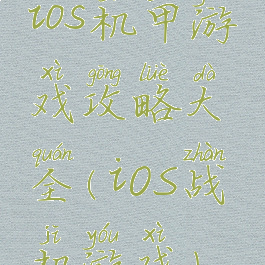 ios机甲游
xì gōng lüè dà
戏攻略大
quán zhàn
全(ios战
jī yóu xì
机游戏)